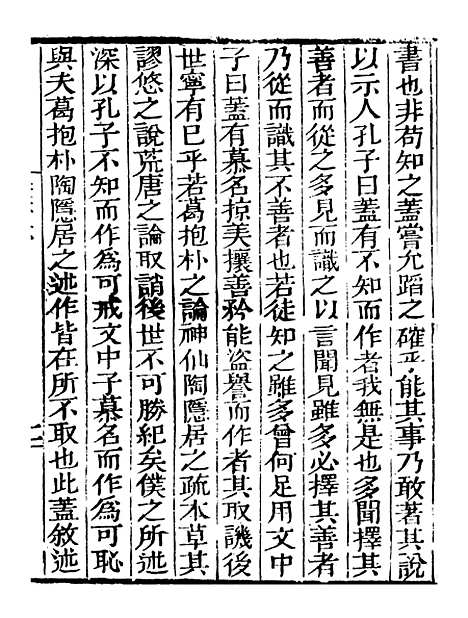 書也非苟知之蓋嘗允蹈之確乎能其事乃敢著其說
以示人孔子曰蓋有不知而作者我無是也多聞擇其
善者而從之多見而識之以言聞見雖多必擇其善者
乃從而識其不善者也若徒知之雖多曾何足用文中
子曰蓋有慕名掠美攘善矜能盜譽而作者其取譏後
世寧有已乎若葛抱朴之論神仙陶隱居之疏本草其
謬悠之說荒唐之論取誚後世不可勝紀矣僕之所述
深以孔子不知而作為可戒文中子慕名而作為可恥
與夫葛抱朴陶隱居之述作皆在所不取也此蓋敘述